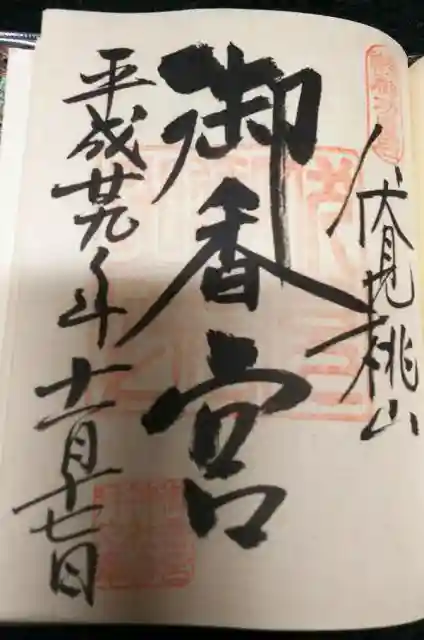 伏見桃山
御香宮
平成廿九年
十一月十七日